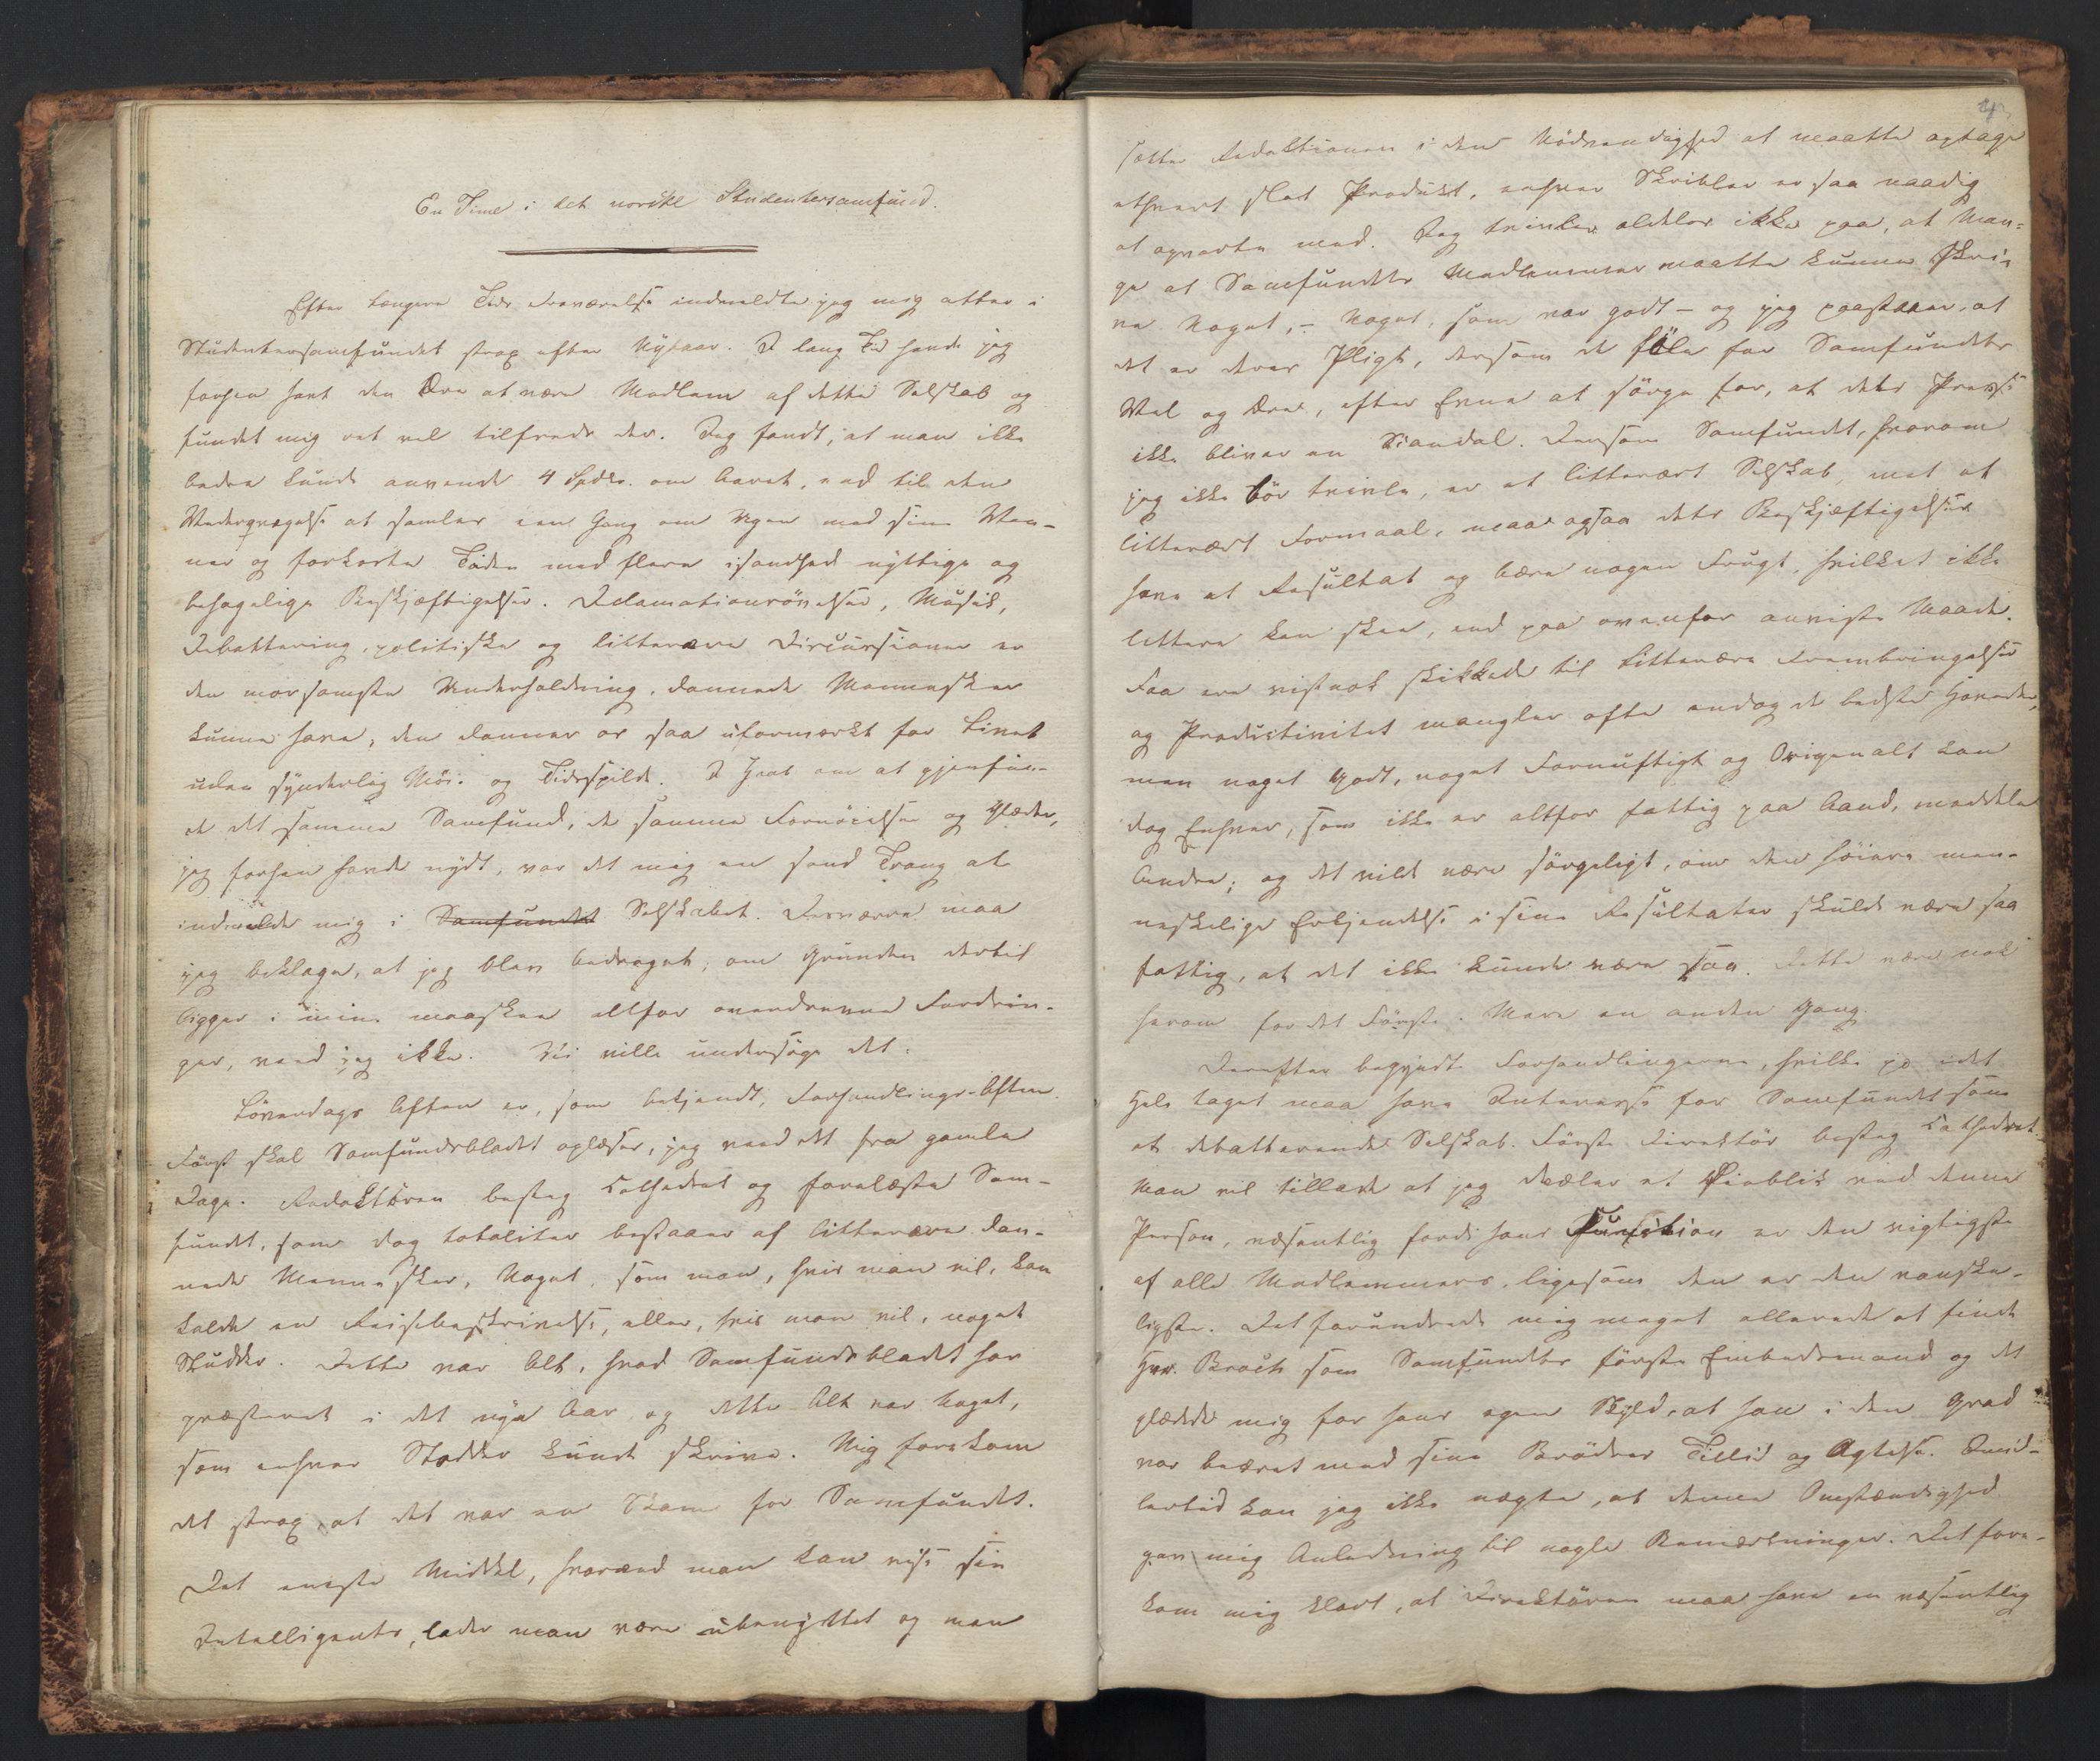 En Time i det norske Studentersamfund.
Efter længere Tids Fraværelse indmeldte jeg mig atter i
Studentersamfundet strax efter Nytaar. I lang Tid havde jeg
forhen havt den Ære at være Medlem af dette Selskab og
fundet mig ret vel tilfreds der. Jeg fandt, at man ikke
bedre kunde anvende 4 Spdlr. om Aaret, end til den
Vederqvægelse at samles een Gang om Ugen med sine Ven-
ner og forkorte Tiden med flere isandhed nyttige og
behagelige Beskjæftigelser. Declamationsövelser, Musik,
Debattering, politiske og litterære Discussioner er
den morsomste Underholdning, dannede Mennesker
kunne have, den danner os saa uformærkt for Livet
uden synderlig Möie og Tidsspilde. I Haab om at gjenfin-
de det samme Samfund, de samme Fornöielser og Glæder,
jeg forhen havde nydt, var det mig en sand Trang at
indmelde mig i Samfundet Selskabet. Desværre maa
jeg beklage, at jeg blev bedraget; om Grunden dertil
ligger i mine maaskee altfor overdrevne Fordrin-
ger, veed jeg ikke. Vi ville undersöge det.
Löverdags Aften er, som bekjendt, Forhandlings-Aften.
Först skal Samfundsbladet oplæses, jeg veed det fra gamle
Dage. Redaktören besteg Cathedret og forelæste Sam-
fundet, som dog totaliter bestaaer af litterære dan-
nede Mennesker, Noget, som man, hvis man vil, kan
kalde en Reisebeskrivelse, eller, hvis man vil, noget
Studder. Dette var Alt, hvad Samfundsbladet har
præsteret i det nye Aar og dette Alt var Noget,
som enhver Stodder kunde skrive. Mig forekom
det strax, at det var en Skam for Samfundet.
Det eneste Middel, hvorved man kan vise sin
Intelligents, lader man være ubenyttet og man
sætter Redaktionen i den Nödvendighed at maatte optage
ethvert slet Produkt, enhver Skribler er saa naadig
at opvarte med. Jeg tvivler aldeles ikke paa, at Man-
ge af Samfundets Medlemmer maatte kunne skri-
ve Noget, – Noget, som var godt – og jeg paastaaer, at
det er deres Pligt, dersom de föle for Samfundets
Vel og Ære, efter Evne at sörge for, at dets Presse
ikke bliver en Scandal. Dersom Samfundet, hvorom
jeg ikke bör tvivle, er et litterært Selskab, med et
litterært Formaal, maae ogsaa dets Beskjæftigelser
have et Resultat og bære nogen Frugt, hvilket ikke
lettere kan skee, end paa ovenfor anviste Maade.
Faa ere vistnok skikkede til litterære Frembringelser
og Productivitet mangler ofte endog de bedste Hoveder,
men noget Godt, noget Fornuftigt og Origenalt kan
dog Enhver, som ikke er altfor fattig paa Aand, meddele
Andre; og det vilde være sörgeligt, om den höiere men-
neskelige Erkjendelse i sine Resultater skulde være saa
fattig, at det ikke kunde være saa. Dette være nok
herom for det Förste. Mere en anden Gang.
Derefter begyndte Forhandlingerne, hvilke jo idet
Hele taget maa have Interesse for Samfundet som
et debatterende Selskab. Förste Direktör besteg Cathedret.
Man vil tillade at jeg dvæler et Öieblik ved denne
Person, væsentlig fordi hans Function er den vigtigste
af alle Medlemmers, ligesom den er den vanske-
ligste. Det forundrede mig meget allerede at finde
Hrr. Broch som Samfundets förste Embedsmand og det
glædede mig for hans egen Skyld, at han i den Grad
var beæret med sine Brödres Tillid og Agtelse. Imid-
lertid kan jeg ikke nægte, at denne Omstændighed
gav mig Anledning til nogle Bemærkninger. Det fore-
kom mig klart, at Direktören maa have en væsentlig